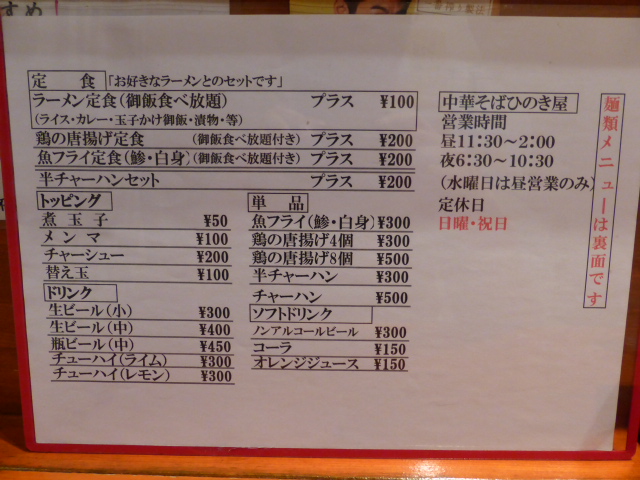 すめ
定 食 「お好きなラーメンとのセットです」
ラーメン定食(御飯食べ放題) プラス ¥100
(ライス・カレー・玉子かけ御飯・漬物・等)
鶏の唐揚げ定食 (御飯食べ放題付き) プラス ¥200
魚フライ定食(鯵・白身)(御飯食べ放題付き) プラス ¥200
半チャーハンセット プラス ¥200
トッピング
煮 玉 子 ¥50
メ ン マ ¥100
チャーシュー ¥200
替え玉 ¥100
ドリンク
生ビール(小) ¥300
生ビール(中) ¥400
瓶ビール(中) ¥450
チューハイ(ライム) ¥300
チューハイ(レモン) ¥300
単 品
魚フライ(鯵・白身) ¥300
鶏の唐揚げ4個 ¥300
鶏の唐揚げ8個 ¥500
半チャーハン ¥300
チャーハン ¥500
ソフトドリンク
ノンアルコールビール ¥300
コーラ ¥150
オレンジジュース ¥150
中華そばひのき屋
営業時間
昼11:30~2:00
夜6:30~10:30
(水曜日は昼営業のみ)
定休日
日曜・祝日
麺類メニューは裏面です